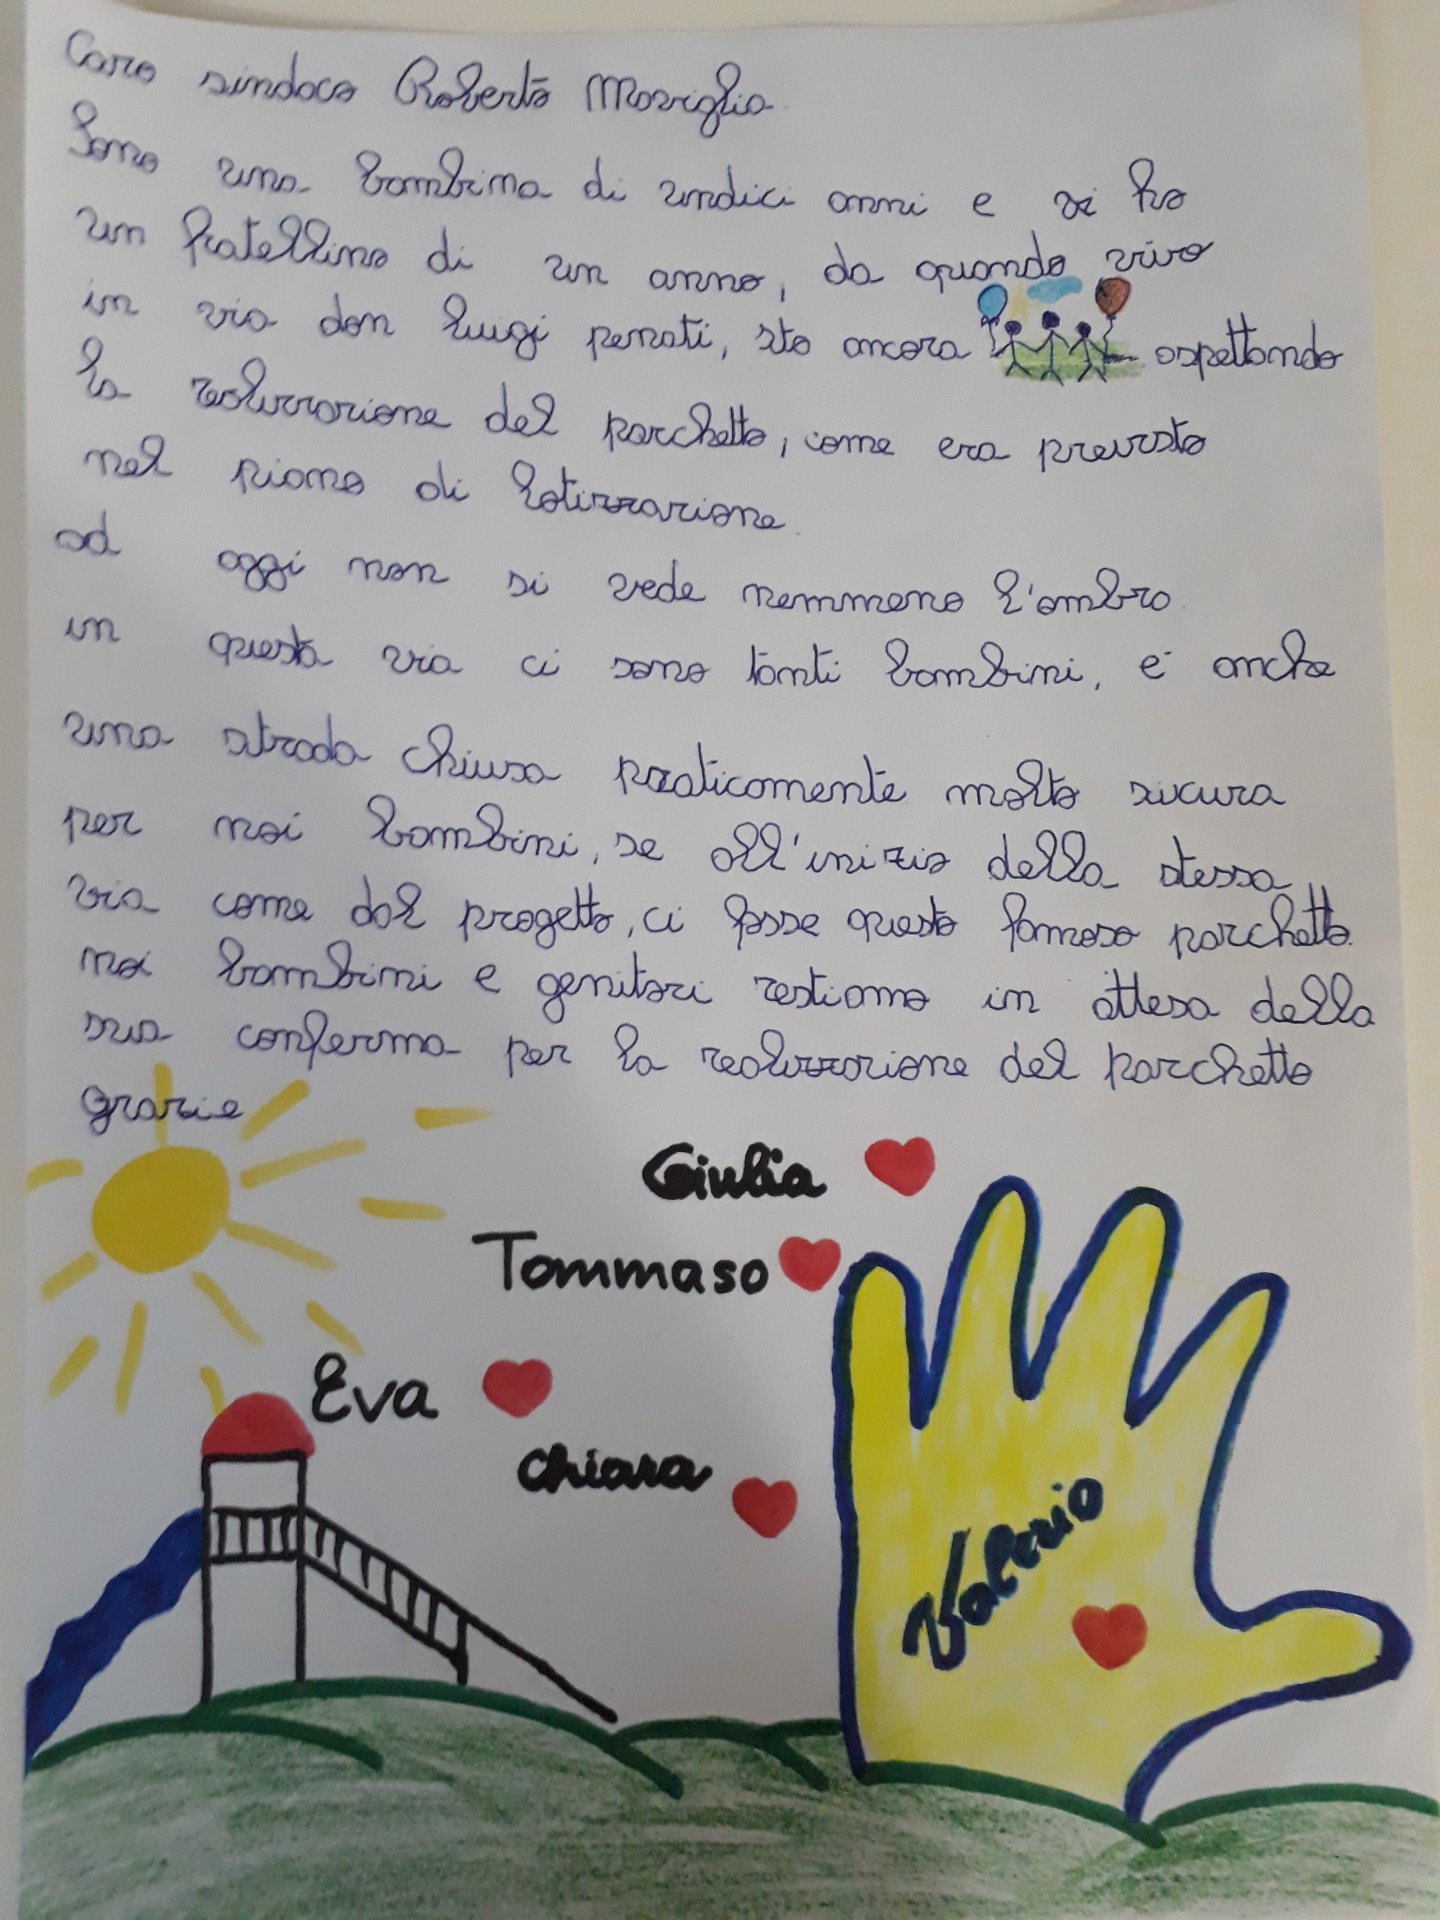 Caro sindaco Roberto Maviglia.
Sono una bambina di undici anni e ho
un fratellino di un anno, da quando vivo
in via don luigi penati, sto ancora aspettando
la realizzazione del parchetto, come era previsto
nel piano di lotizzazione.
ad oggi non si vede nemmeno l'ombra.
in questa via ci sono tanti bambini, e anche
una strada chiusa praticamente molto sicura
per noi bambini, se all'inizio della stessa
via come dal progetto, ci fosse questo famoso parchetto.
noi bambini e genitori restiamo in attesa della
sua conferma per la realizzazione del parchetto
grazie
Giulia
Tommaso
Eva
chiara
Valerio